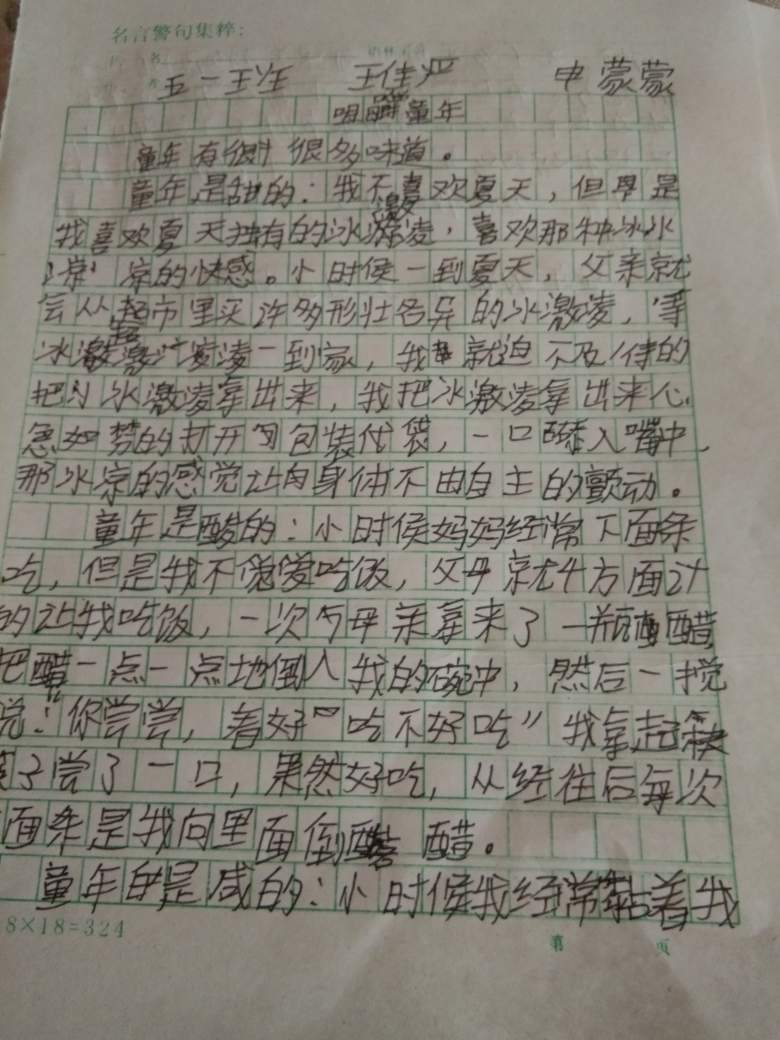 名言警句集粹:
五一班 申蒙蒙
咀嚼童年
童年有很多味道。
童年是甜的:我不喜欢夏天,但是
我喜欢夏天独有的冰激凌,喜欢那种冰冰
凉凉的快感。小时候一到夏天,父亲就
会从超市里买许多形壮各异的冰激凌,等
冰激凌一到家,我就迫不及待的
把冰激凌拿出来,我把冰激凌拿出来心
急如焚的打开包装袋,一口舔入嘴中,
那冰凉的感觉让自身体不由自主的颤动。
童年是酸的:小时候妈妈经常下面条
吃,但是我不爱吃饭,父母就千方面计
的让我吃饭,一次母亲拿来了一瓶醋
把醋一点一点地倒入我的碗中,然后一搅
说:你尝尝,看好吃不好吃”我拿起筷
子尝了一口,果然好吃,从经往后每次
面条是我向里面倒醋。
童年是咸的:小时候我经常粘着我
8×18=324
第 页